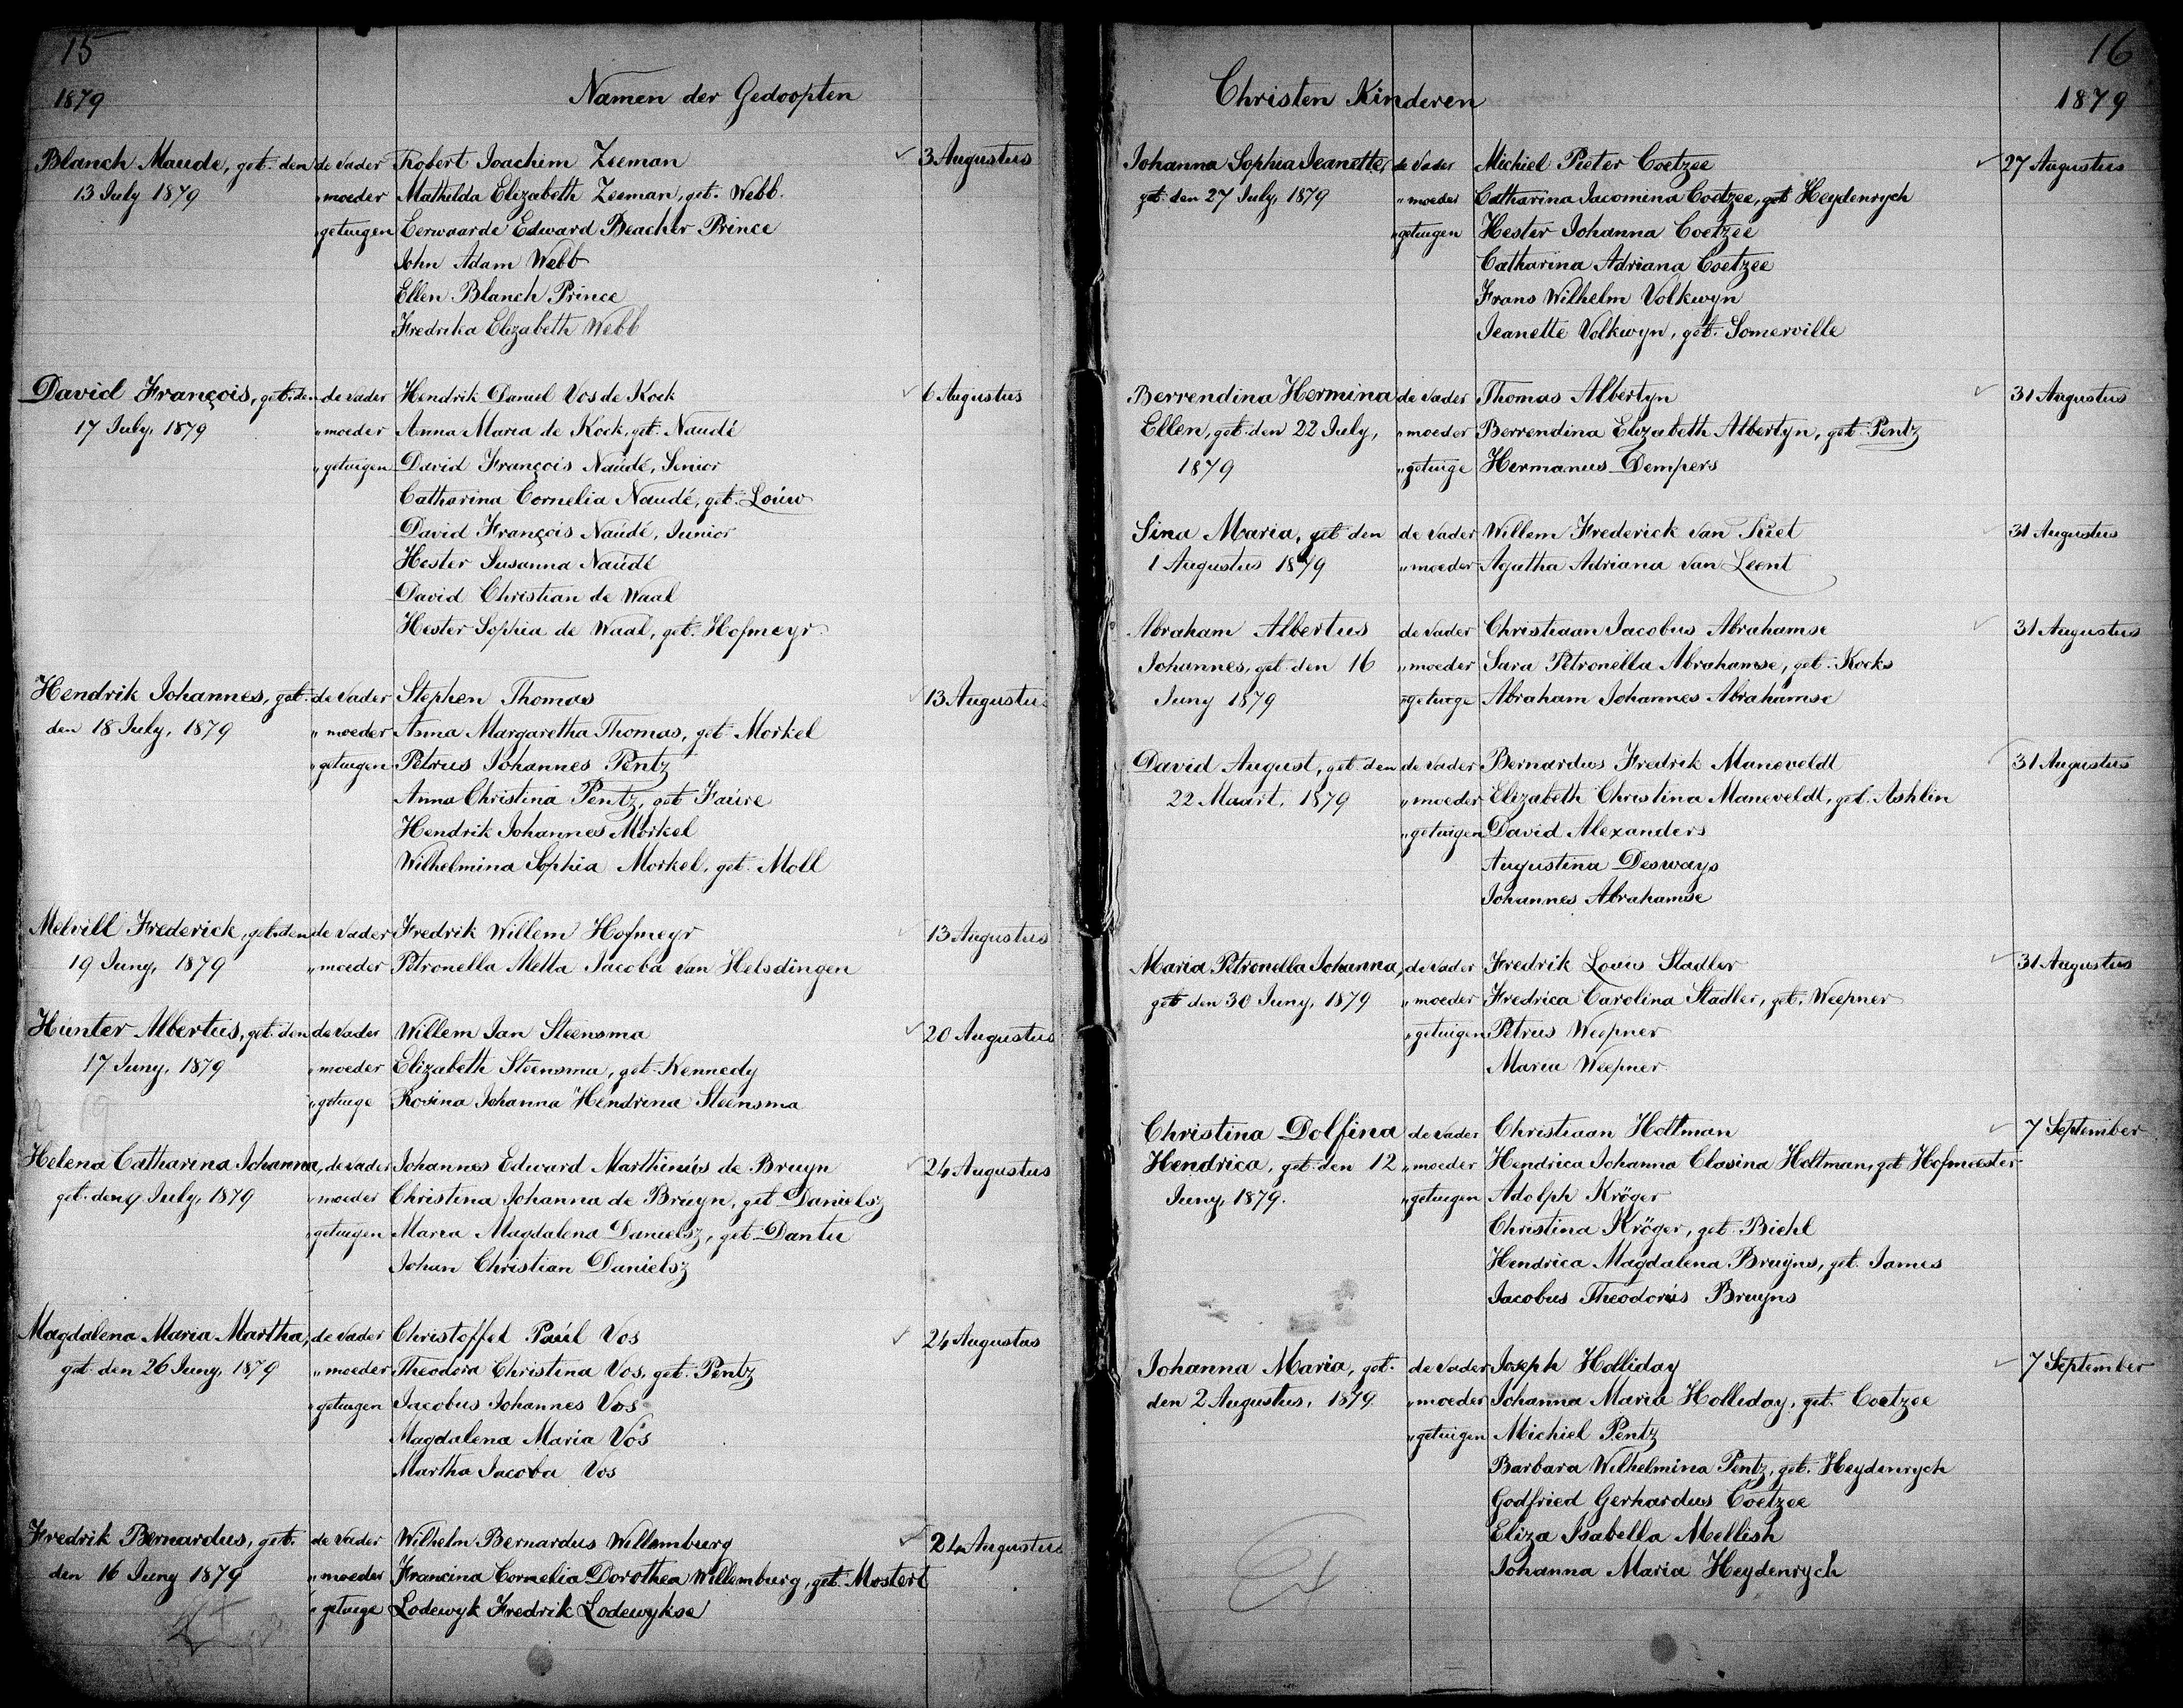 15
1879
Namen der Gedoopten
Blanch Maude, geb. den de Vader Robert Joachim Zeeman 3 Augustus
13 July 1879 " moeder Mathilda Elizabeth Zeeman, geb. Webb.
" getuigen Eerwaarde Edward Beacher Prince
John Adam Webb
Ellen Blanch Prince
Fredrika Elizabeth Webb
David François, geb. den de Vader Hendrik Daniel Vos de Kock 6 Augustus
17 July, 1879 " moeder Anna Maria de Kock, geb. Naudé
" getuigen David François Naudé, Senior
Catharina Cornelia Naudé, geb. Louw
David François Naudé, Junior
Hester Susanna Naudé
David Christian de Waal
Hester Sophia de Waal, geb. Hofmeyr.
Hendrik Johannes, geb. de Vader Stephen Thomas 13 Augustus
den 18 July, 1879 " moeder Anna Margaretha Thomas, geb. Morkel
" getuigen Petrus Johannes Pentz
Anna Christina Pentz, geb. Faure
Hendrik Johannes Morkel
Wilhelmina Sophia Morkel, geb. Moll
Melvill Frederick, geb. den de Vader Fredrik Willem Hofmeyr 13 Augustus
19 Juny, 1879 " moeder Petronella Metta Jacoba van Helsdingen
Hunter Albertus, geb. den de Vader Willem Jan Steensma 20 Augustus
17 Juny, 1879 " moeder Elizabeth Steensma, geb. Kennedy
" getuige Rosina Johanna Hendrina Steensma
Helena Catharina Johanna, de Vader Johannes Edward Marthinus de Bruyn 24 Augustus
geb. den 4 July, 1879 " moeder Christina Johanna de Bruyn, geb. Danielsz
" getuigen Maria Magdalena Danielsz, geb. Dantu
Johan Christian Danielsz
Magdalena Maria Martha, de Vader Christoffel Paul Vos 24 Augustus
geb. den 26 Juny, 1879 " moeder Theodora Christina Vos, geb. Pentz
" getuigen Jacobus Johannes Vos
Magdalena Maria Vos
Martha Jacoba Vos
Fredrik Bernardus, geb. de Vader Wilhelm Bernardus Willemburg 24 Augustus
den 16 Juny 1879 " moeder Francina Cornelia Dorothea Willemburg, geb. Mostert
" getuige Lodewyk Fredrik Lodewykse
16
Christen Kinderen
1879
Johanna Sophia Jeanette, de Vader Michiel Pieter Coetzee 27 Augustus
geb. den 27 July, 1879 " moeder Catharina Jacomina Coetzee, geb. Heydenrych
" getuigen Hester Johanna Coetzee
Catharina Adriana Coetzee
Frans Wilhelm Volkwyn
Jeanette Volkwyn, geb. Somerville
Berrendina Hermina de Vader Thomas Albertyn 31 Augustus
Ellen, geb. den 22 July, " moeder Berrendina Elizabeth Albertyn, geb. Pentz
1879 " getuige Hermanus Dempers
Sina Maria, geb. den de Vader Willem Frederick van 31 Augustus
1 Augustus 1879 " moeder Agatha Adriana van Leent
Abraham Albertus de Vader Christiaan Jacobus Abrahamse 31 Augustus
Johannes, geb. den 16 " moeder Sara Petronella Abrahamse, geb. Kocks
Juny 1879 " getuige Abraham Johannes Abrahamse
David August, geb. den de Vader Bernardus Fredrik Maneveldt 31 Augustus
22 Maart, 1879 " moeder Elizabeth Christina Maneveldt, geb. Ashlin
" getuigen David Alexanders
Augustina Desways
Johannes Abrahamse
Maria Petronella Johanna, de Vader Fredrik Louis Stadler 31 Augustus
geb. den 30 Juny, 1879 " moeder Fredrica Carolina Stadler, geb. Weepner
" getuigen Petrus Weepner
Maria Weepner
Christina Dolfina de Vader Christiaan Holtman 7 September
Hendrica, geb. den 12 " moeder Hendrica Johanna Clasina Holtman, geb. Hofmeester
Juny, 1879. " getuigen Adolph Kröger
Christina Kröger, geb. Biehl
Hendrica Magdalena Bruyns, geb. James
Jacobus Theodorus Bruyns
Johanna Maria, geb. de Vader Joseph Holliday 7 September
den 2 Augustus, 1879 " moeder Johanna Maria Holliday, geb. Coetzee
" getuigen Michiel Pentz
Barbara Wilhelmina Pentz, geb. Heydenrych
Godfried Gerhardus Coetzee
Eliza Isabella Mellish
Johanna Maria Heydenrych